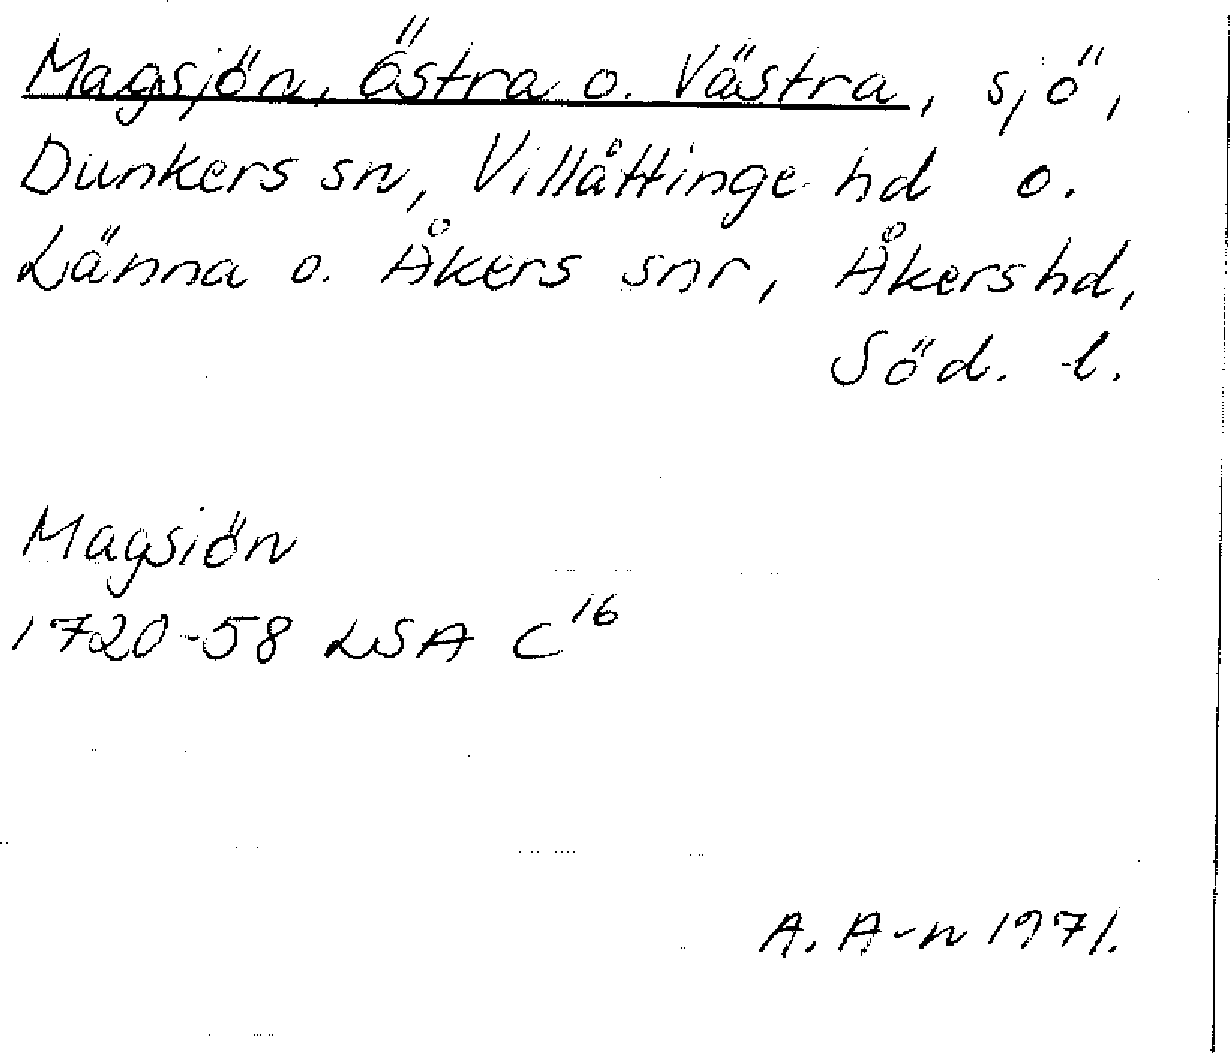 Magsjön, Östra o. Västra, sjö,
Dunkers sn, Villåttinge hd o.
Länna o. Åkers snr, Åkers hd,
Söd. l.
Magsiön
1720-58 LSA C16
A. A-n 1971.